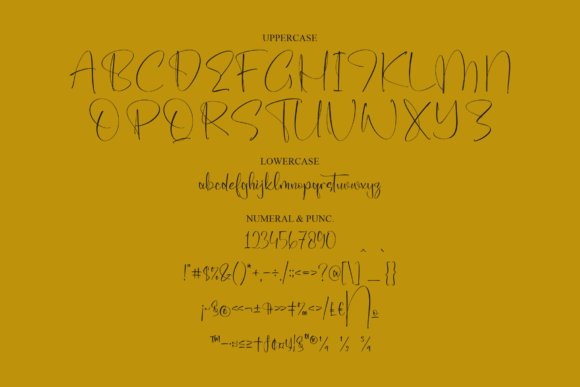 UPPERCASE
ABCDEFGHIJKLMN
OPQRSTUVWXYZ
LOWERCASE
abcdefghijklmnopqrstuvwxyz
NUMERAL & PUNC.
1234567890
!"#$%&()*+,-÷./:;<=>?@[\]^_`{}
™–·:≤≥†ƒ¢¤¥|§"®¼ ½ ¾